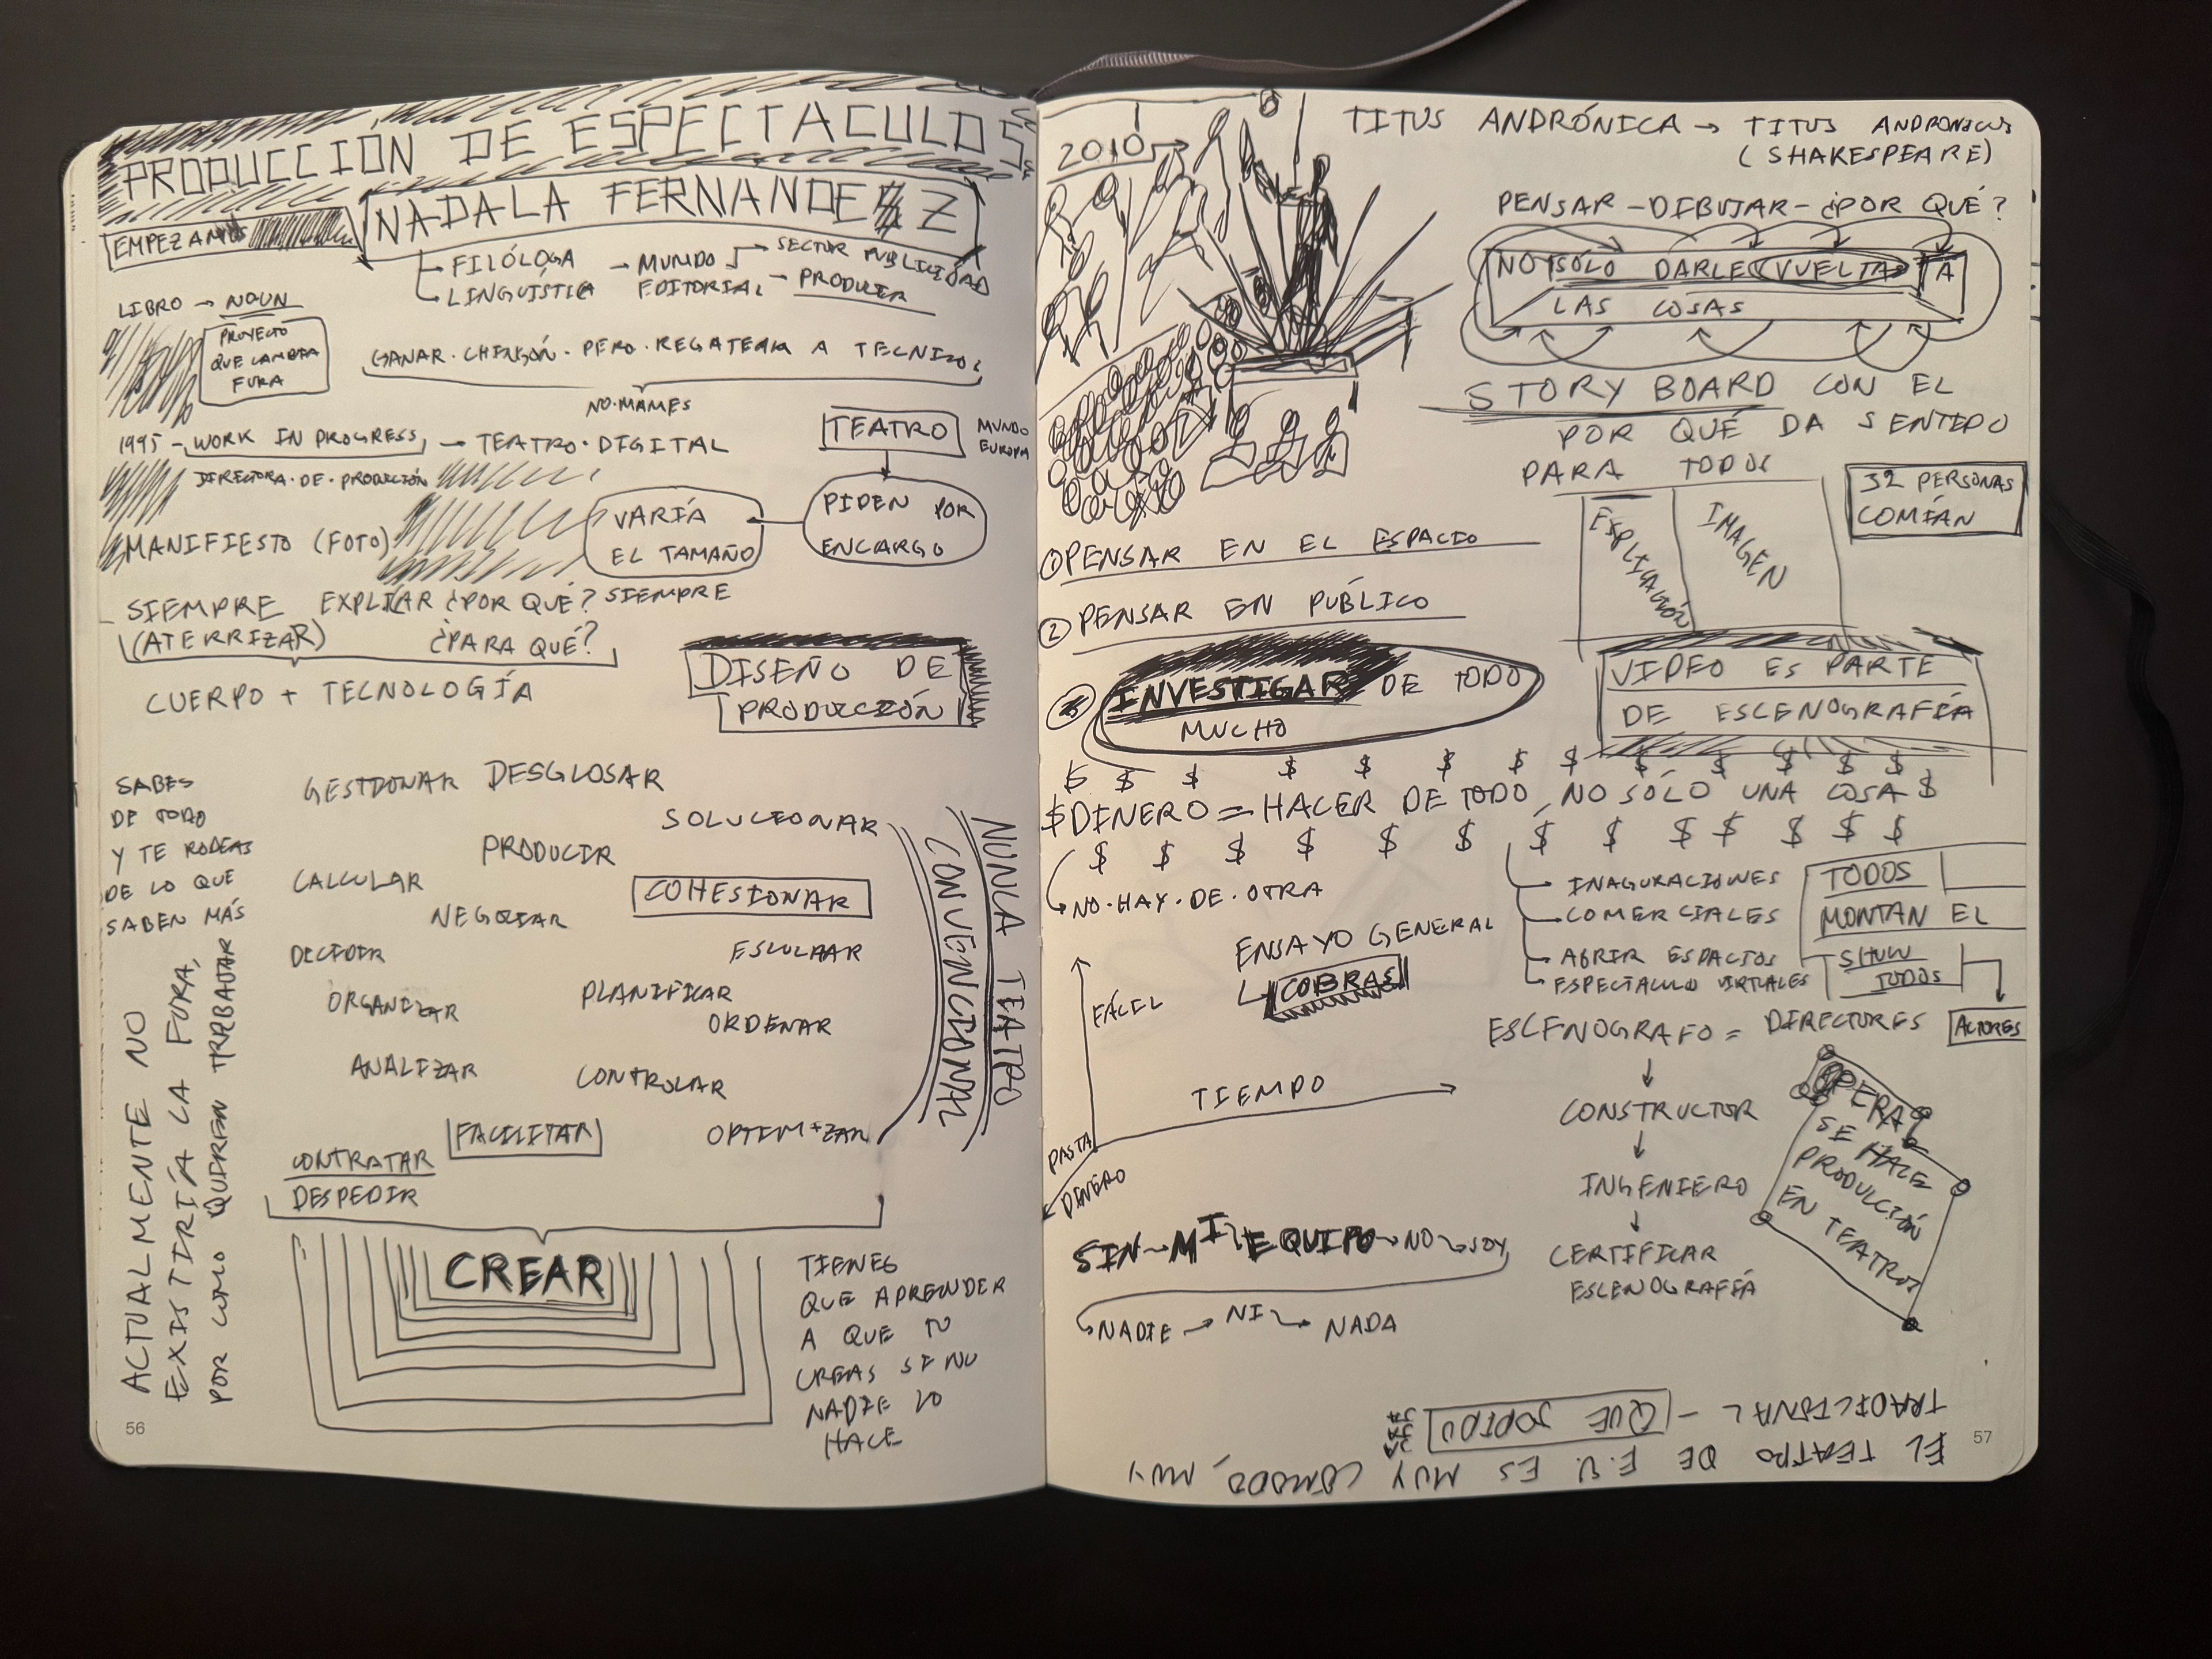 PRODUCCIÓN DE ESPECTACULOS
EMPEZAMOS
NADALA FERNANDEZ
FILÓLOGA
LINGUISTICA
MUNDO
EDITORIAL
SECTOR PUBLICIDAD
PRODUCIR
LIBRO → NOUN
PROYECTO
QUE CAMBIA
FURA
GANAR · CHINGÓN · PERO · REGATEAR A TECNICOS
NO·MAMES
1995 - WORK IN PROGRESS, → TEATRO · DIGITAL
DIRECTORA · DE · PRODUCCIÓN
TEATRO
MUNDO
EUROPA
PIDEN POR
ENCARGO
VARÍA
EL TAMAÑO
MANIFIESTO (FOTO)
SIEMPRE EXPLICAR ¿POR QUÉ? SIEMPRE
(ATERRIZAR) ¿PARA QUÉ?
CUERPO + TECNOLOGÍA
DISEÑO DE
PRODUCCIÓN
SABES
DE TODO
Y TE RODEAS
DE LO QUE
SABEN MÁS
GESTIONAR DESGLOSAR
SOLUCIONAR
PRODUCIR
CALCULAR
COHESIONAR
NEGOCIAR
DECIDIR
ORGANIZAR
PLANIFICAR
ORDENAR
ANALIZAR
CONTROLAR
FACILITAR
OPTIMIZAR
CONTRATAR
DESPEDIR
NUNCA TEATRO
CONVENCIONAL
ACTUALMENTE NO
EXISTIRÍA LA FURA,
POR COMO QUIEREN TRABAJAR
CREAR
TIENES
QUE APRENDER
A QUE TU
CREAS SI NO
NADIE LO
HACE
56
2010
TITUS ANDRÓNICA → TITUS ANDRONICUS
(SHAKESPEARE)
PENSAR - DIBUJAR - ¿POR QUÉ?
NO SÓLO DARLE VUELTAS A
LAS COSAS
STORY BOARD CON EL
POR QUÉ DA SENTIDO
PARA TODOS
EXPLICACIÓN
IMAGEN
32 PERSONAS
COMÍAN
① PENSAR EN EL ESPACIO
② PENSAR EN PÚBLICO
③ INVESTIGAR DE TODO
MUCHO
VIDEO ES PARTE
DE ESCENOGRAFÍA
$ $ $ $ $ $ $ $ $ $ $ $ $
$DINERO = HACER DE TODO, NO SÓLO UNA COSA $
$ $ $ $ $ $ $ $ $ $ $ $ $
NO · HAY · DE · OTRA
INAGURACIONES
COMERCIALES
ABRIR ESPACIOS
ESPECTACULO VIRTUALES
TODOS
MONTAN EL
SHOW
TODOS
ACTORES
ENSAYO GENERAL
COBRAS
FÁCIL
TIEMPO
PASTA
DINERO
ESCENOGRAFO = DIRECTORES
CONSTRUCTOR
INGENIERO
CERTIFICAR
ESCENOGRAFÍA
OPERA
SE HACE
PRODUCCIÓN
EN TEATROS
SIN → MI EQUIPO → NO → SOY
NADIE → NI → NADA
EL TEATRO DE E.U. ES MUY COMODO, MUY
TRADICIONAL - QUE JODIDO
JA
JA
JA
57